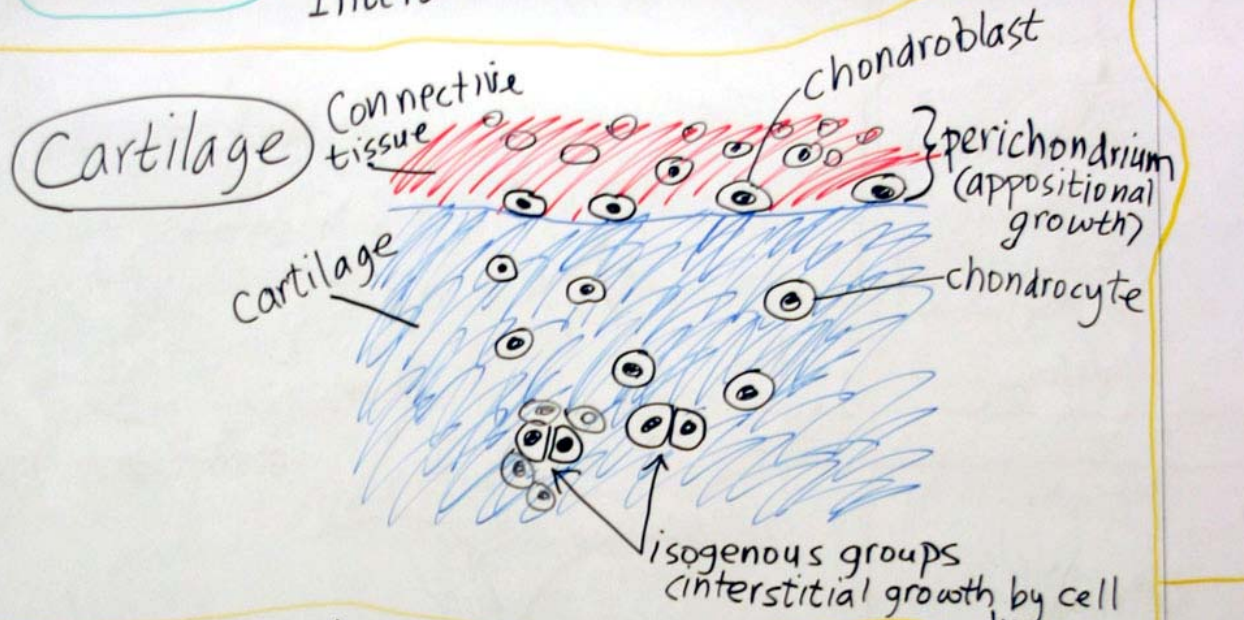 Cartilage
Connective
tissue
chondroblast
perichondrium
(appositional
growth)
cartilage
chondrocyte
isogenous groups
(interstitial growth by cell